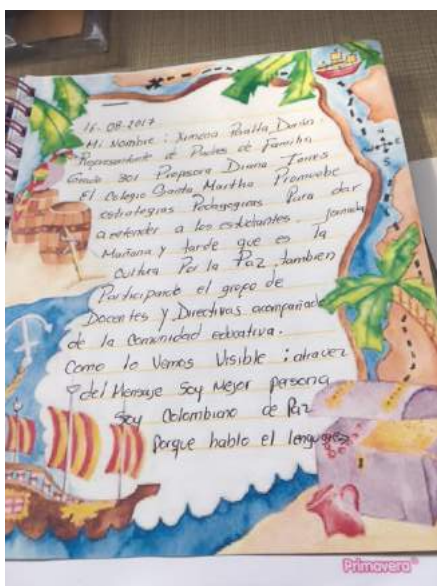 16-08-2017.
Mi Nombre: Ximena Peralta Durán.
Representante de Padres de Familia
Grado 301 Profesora Diana Torres
El Colegio Santa Martha Promuebe
estrategias Pedagogicas Para dar
a entender a los estudiantes. Jornada
Mañana y tarde que es la
Cultura Por la Paz. tambien
Participando el grupo de
Docentes y Directivas acompañado
de la Comunidad educativa.
Como lo Vemos Visible: atravez
del Mensaje Soy Mejor persona
Soy Colombiano de Paz
Porque hablo el lenguaje
Primavera